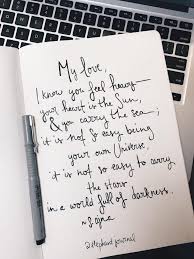 My love,
I know you feel heavy—
your heart is the Sun,
& you carry the sea—;
it is not so easy being
your own Universe,
it is not so easy to carry
the stars
in a world full of darkness.
elephant journal